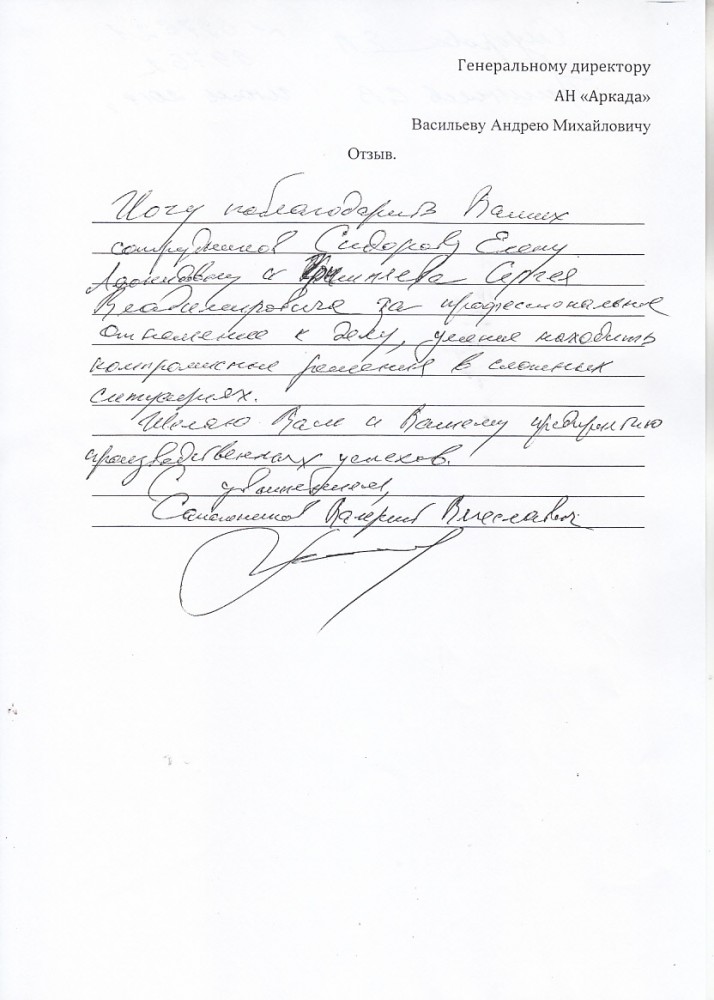 Генеральному директору
АН «Аркада»
Васильеву Андрею Михайловичу
Отзыв.
Хочу поблагодарить Ваших
сотрудников Сидорову Елену
и Сергея
Владимировича за профессиональное
отношение к делу, умение находить
компромисные решения в сложных
ситуациях.
Желаю Вам и Вашему предприятию
производственных успехов.
С уважением,
Валерий Вячеславович